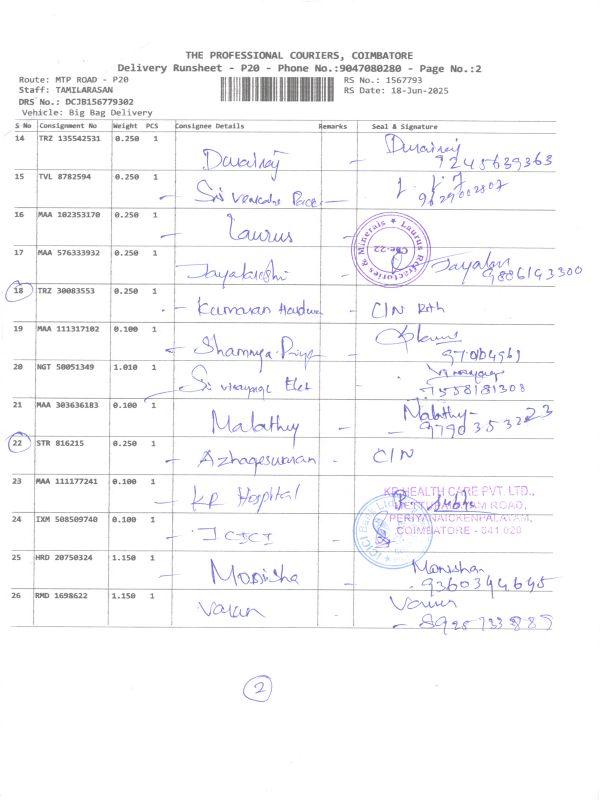 THE PROFESSIONAL COURIERS, COIMBATORE
Delivery Runsheet - P20 - Phone No.:9047080280 - Page No.:2
Route: MTP ROAD - P20 RS No.: 1567793
Staff: TAMILARASAN RS Date: 18-Jun-2025
DRS No.: DCJB156779302
Vehicle: Big Bag Delivery
S No Consignment No Weight PCS Consignee Details Remarks Seal & Signature
14 TRZ 135542531 0.250 1 Durairaj - Durairaj
9245639363
15 TVL 8782594 0.250 1 - Sri - 9629002807
16 MAA 102353170 0.250 1 - Laurus - Laurus Refractories & Minerals Cbe-22
17 MAA 576333932 0.250 1 Jayalakshi Jayalax
9886193300
18 TRZ 30083553 0.250 1 - Kumaran - CIN
19 MAA 111317102 0.100 1 - Shamnya Priya -
20 NGT 50051349 1.010 1 - Sri vinayaga Elet -
7558181308
21 MAA 303636183 0.100 1 Malathy - Malathy
9790353223
22 STR 816215 0.250 1 - Azhageswaran - CIN
23 MAA 111177241 0.100 1 - KR Hospital KR HEALTH CARE PVT. LTD.,
METTUPALAYAM ROAD,
PERIYANAICKENPALAYAM,
COIMBATORE - 641 020
24 IXM 508509740 0.100 1 - ICICI ICICI Bank
25 HRD 20750324 1.150 1 - Monisha - Monishan
9360394695
26 RMD 1698622 1.150 1 - Varun - Varun
2